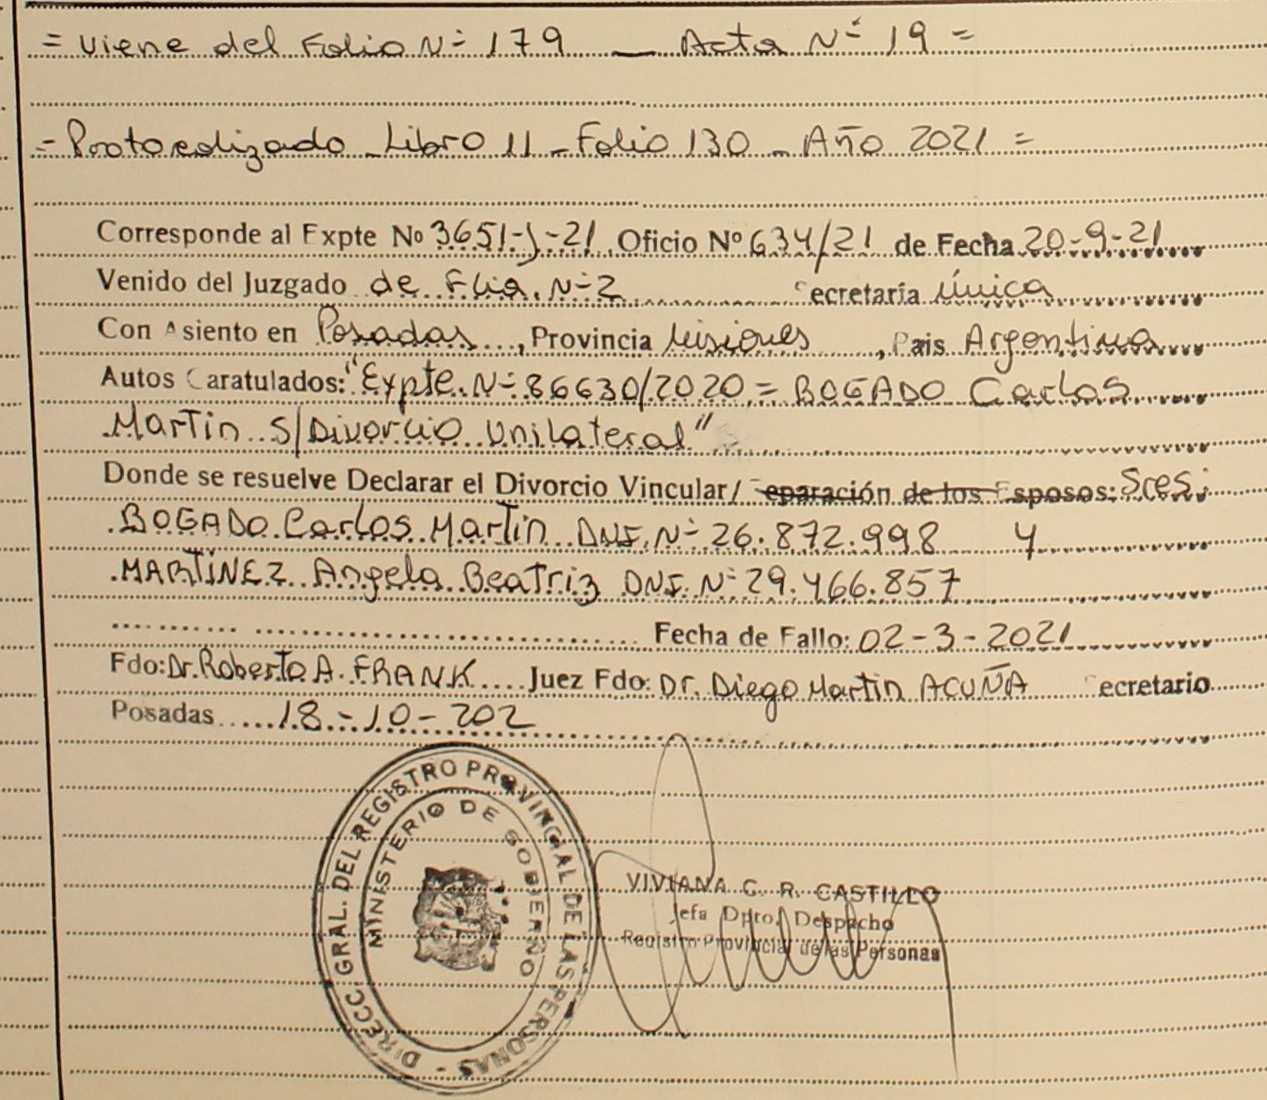 = Viene del Folio Nº 179 — Acta Nº 19 =
= Protocolizado - Libro 11 - Folio 130 - Año 2021 =
Corresponde al Expte Nº 3651-J-21 Oficio Nº 634/21 de Fecha 20-9-21
Venido del Juzgado de Flia. Nº 2 Secretaría Única
Con Asiento en Posadas, Provincia Misiones, Pais Argentina
Autos Caratulados: "Expte. Nº 86630/2020 = BOGADO Carlos
Martin S/Divorcio Unilateral"
Donde se resuelve Declarar el Divorcio Vincular/ Separación de los Esposos: Sres:
BOGADO Carlos Martin DNI. Nº 26.872.998 y
MARTINEZ Angela Beatriz DNI. Nº 29.466.857
Fecha de Fallo: 02-3-2021
Fdo: Dr. Roberto A. FRANK Juez Fdo: Dr. Diego Martin ACUÑA Secretario
Posadas 18-10-202
DIRECC. GRAL. DEL REGISTRO PROVINCIAL DE LAS PERSONAS -
MINISTERIO DE GOBIERNO
VIVIANA G. R. CASTILLO
Jefa Dpto. Despacho
Registro Provincial de las Personas